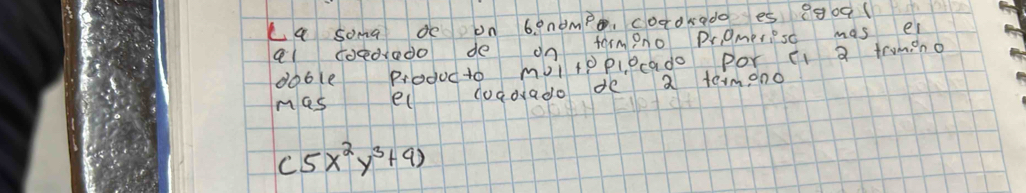 La soma de on benomio, coadrado es igoal
al coadrado de on termino primerisc mas el
doble producto moltiplicado por el 2 termino
mas el coadrado de 2 termino
(5x²y³+9)